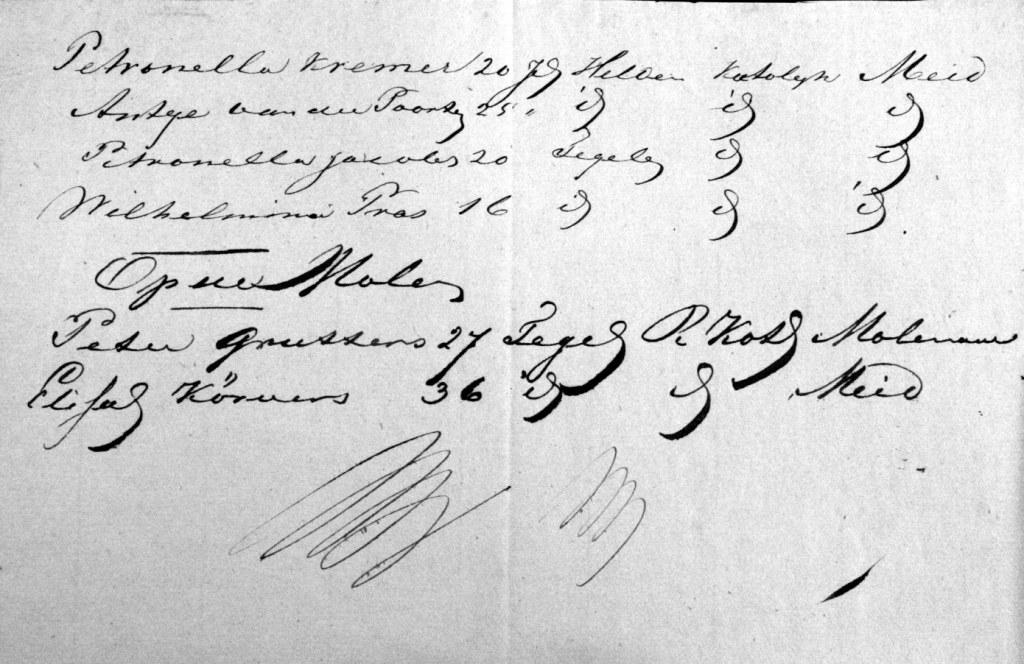 Petronella Kremer 20 J Helden Katolyk Meid
Antje van der Poorten 25 " id id id
Petronella Jacobs 20 Tegelen id id
Wilhelmina Pras 16 id id id
Op de Molen
Peter Grutters 27 Tegel R Koth Molenaar
Elisab Körvers 36 id id Meid